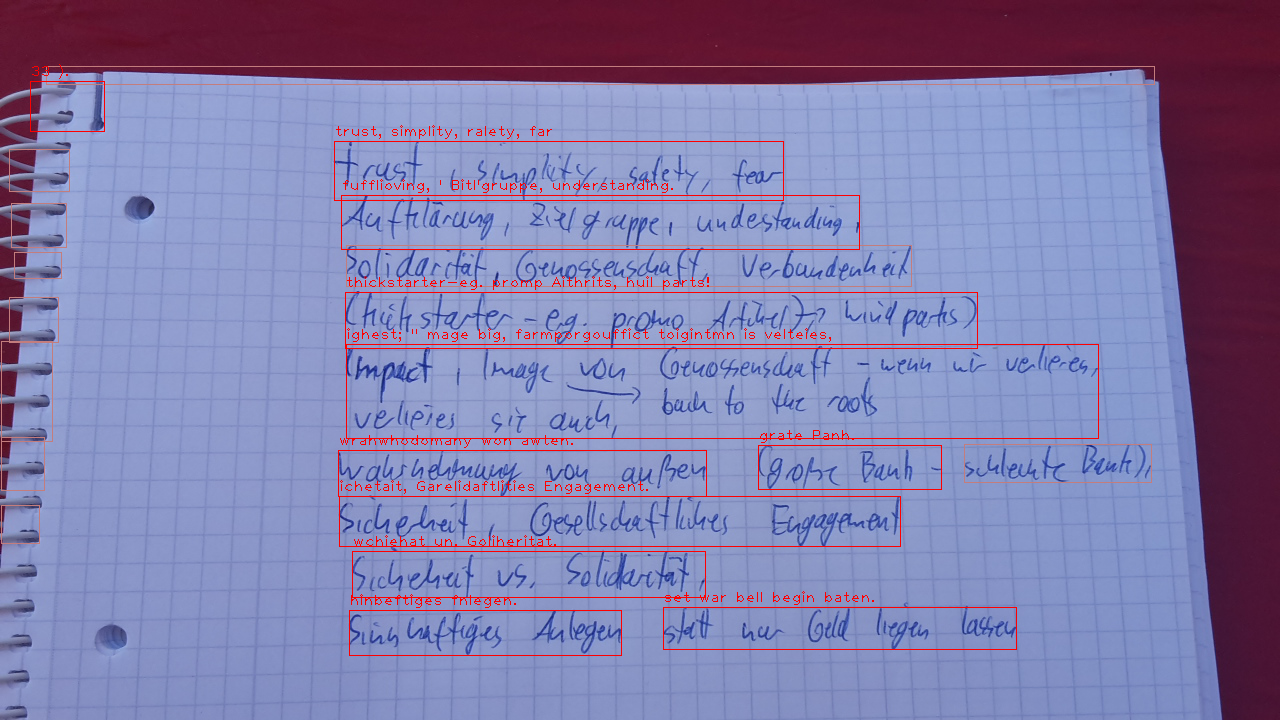 31 ).
trust, simplity, ralety, far
trust, simplity, safety, fear
fufflioving, ' Bitl'gruppe, understanding.
Aufklärung, Zielgruppe, undestanding,
Solidarität, Genossenschaft, Verbundenheit
thickstarter-eg. promp Aithrits, huil parts!
(Kickstarter - e.g. promo Artikel) -> windparks)
ighest; " mage big, farmporgouffict toigintmn is velteles,
(Impact, Image von Genossenschaft - wenn wir verlieres,
verlieres sie auch, back to the roots
wrahwhodomany won awten.
grate Panh.
Wahrnehmung von außen (große Bank - schlechte Bank),
ichetait, Garelidaftlities Engagement.
Sicherheit, Gesellschaftliches Engagement
wchiehat un. Goliheritat.
Sicheheit vs. Solidarität,
hinbeftiges fnlegen.
set war bell begin baten.
Sinnhaftiges Anlegen statt nur Geld liegen lassen